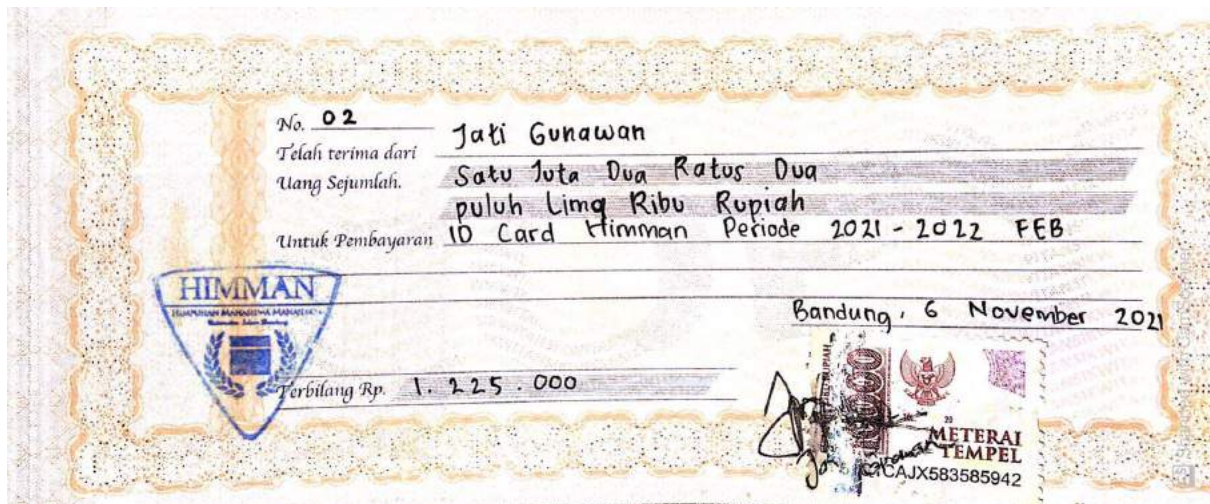 No. 02
Telah terima dari Jati Gunawan
Uang Sejumlah. Satu Juta Dua Ratus Dua
puluh Lima Ribu Rupiah
Untuk Pembayaran ID Card Himman Periode 2021 - 2022 FEB
HIMMAN
HIMPUNAN MAHASISWA MANAJEMEN
Bandung, 6 November 2021
Terbilang Rp. 1. 225 . 000
10000
METERAI
TEMPEL
CAJX583585942